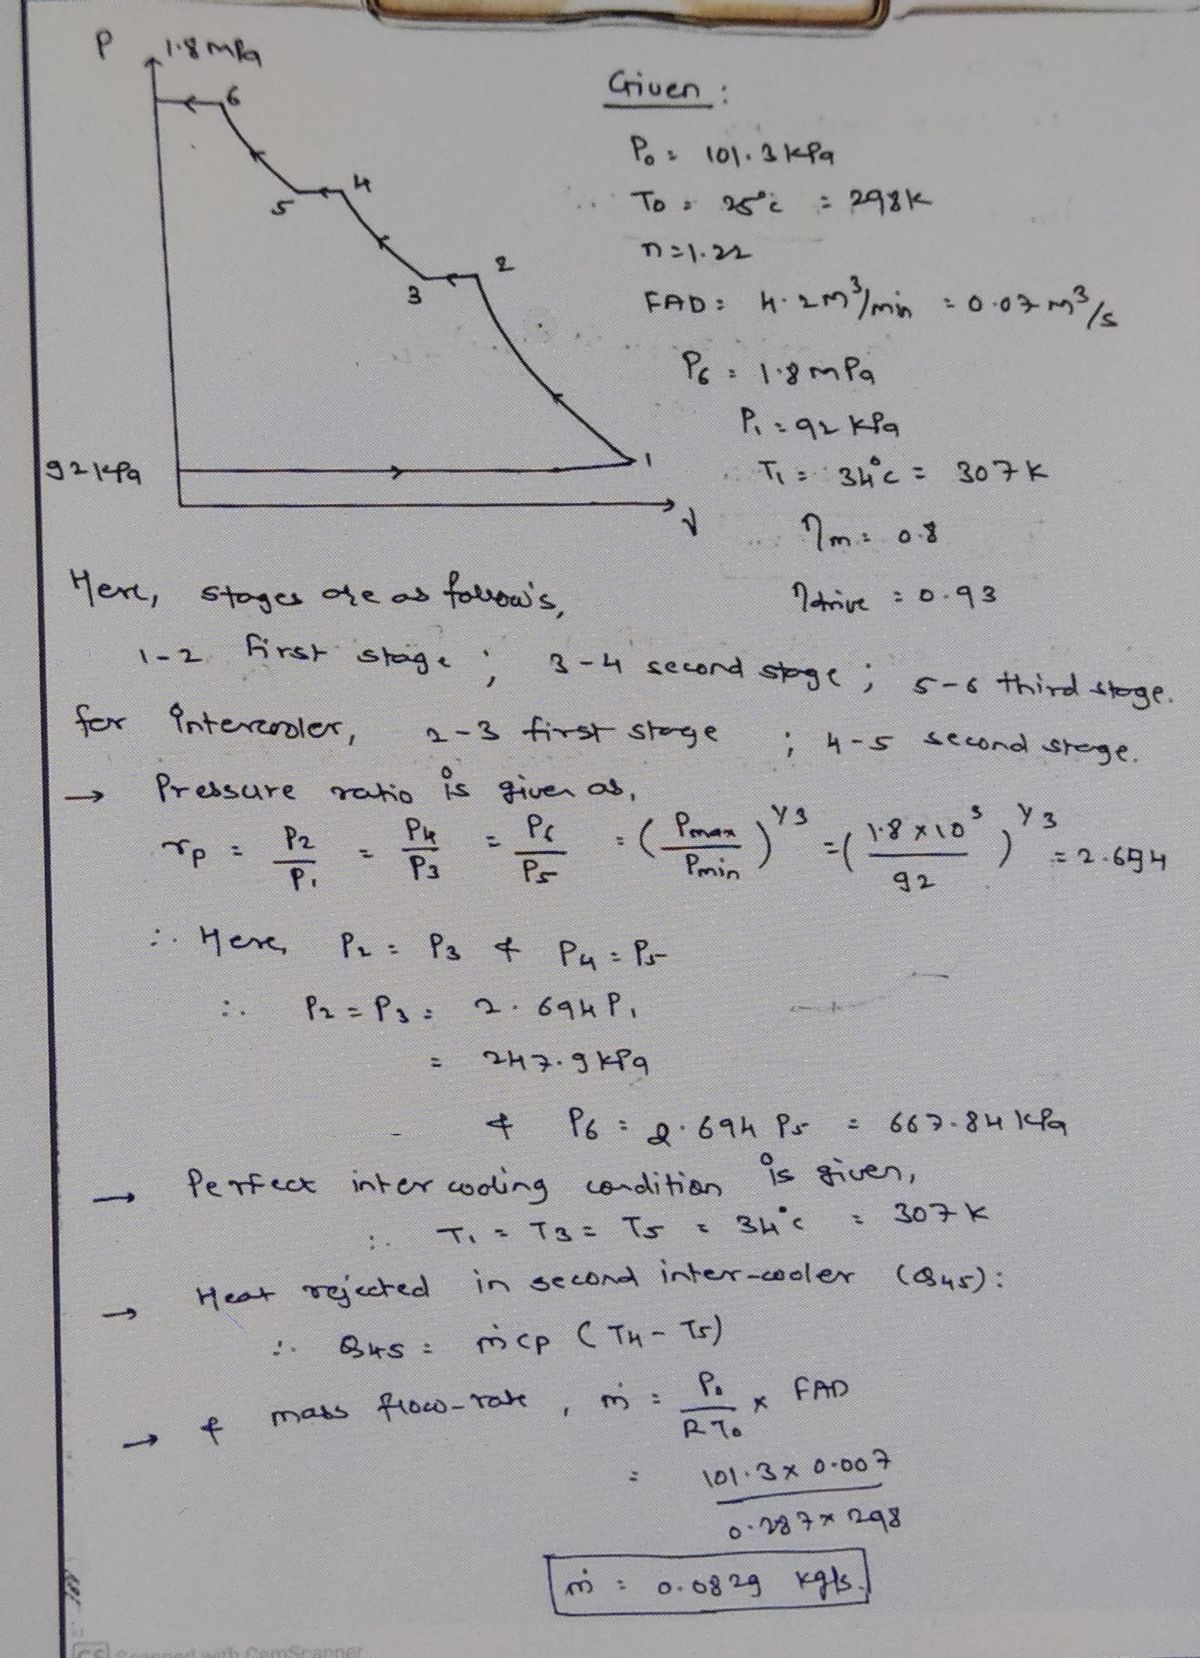 P 1.8 mPa
6
4
5
2
3
1
92 kPa
V
Given :
P₀ = 101.3 kPa
T₀ = 25°c = 298K
n = 1.22
FAD = 4.2 m³/min = 0.07 m³/s
P₆ = 1.8 mPa
P₁ = 92 kPa
T₁ = 34°c = 307 K
ηm = 0.8
ηdrive = 0.93
Here, stages are as follow's,
1-2 first stage ; 3-4 second stage ; 5-6 third stage.
for intercooler, 2-3 first stage ; 4-5 second stage.
→ Pressure ratio is given as,
rp = P₂/P₁ = P₄/P₃ = P₆/P₅ = (Pmax/Pmin)^1/3 = (1.8 × 10³/92)^1/3 = 2.694
∴ Here, P₂ = P₃ & P₄ = P₅
∴ P₂ = P₃ = 2.694 P₁
= 247.9 kPa
& P₆ = 2.694 P₅ = 667.84 kPa
→ Perfect inter cooling condition is given,
∴ T₁ = T₃ = T₅ = 34°c = 307 K
→ Heat rejected in second inter-cooler (Q₄₅) :
∴ Q₄₅ = ṁ cp (T₄ - T₅)
→ & mass flow-rate , ṁ = P₀/RT₀ × FAD
= 101.3 × 0.007/0.287 × 298
ṁ = 0.0829 kg/s.
CS Scanned with CamScanner